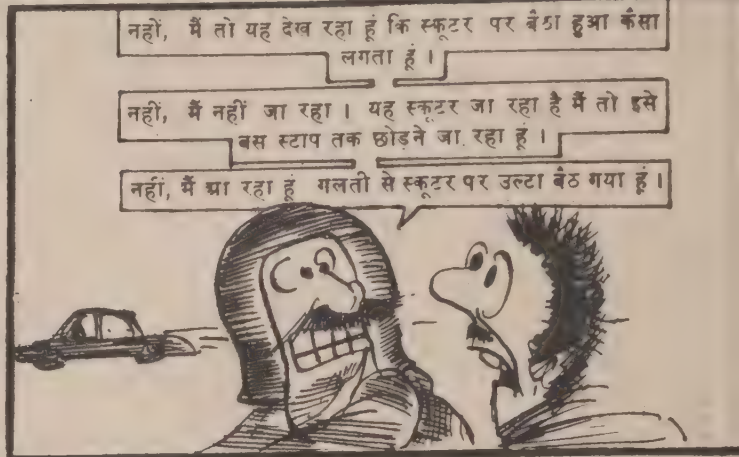 नहीं, मैं तो यह देख रहा हूं कि स्कूटर पर बैठा हुआ कैसा
लगता हूं ।
नहीं, मैं नहीं जा रहा । यह स्कूटर जा रहा है मैं तो इसे
बस स्टाप तक छोड़ने जा रहा हूं ।
नहीं, मैं आ रहा हूं गलती से स्कूटर पर उल्टा बैठ गया हूं ।